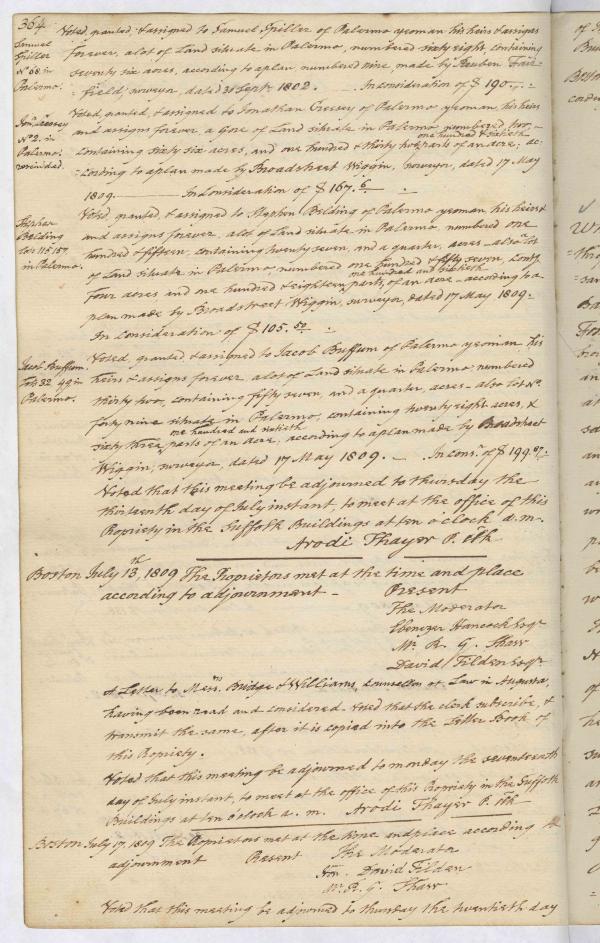 364
Samuel
Spiller
No. 68. in
Palermo.
Voted, granted & assigned to Samuel Spiller of Palermo yeoman his heirs & assigns
forever, a lot of Land situate in Palermo, numbered sixty eight, containing
seventy six acres, according to a plan, numbered nine, made by Reuben Fair-
field, surveyor, dated Sept. 1802. In consideration of $190.
Jon. Cressey
No. 2. in
Palermo.
Voted, granted, & assigned to Jonathan Cressey of Palermo yeoman, his heirs
and assigns forever, a Gore of Land situate in Palermo numbered two,
one hundred & sixtieth
containing sixty six acres, and one hundred & thirty two parts of an acre; ac-
=cording to a plan made by Broadstreet Wiggin, surveyor, dated 17 May
1809. In consideration of $167.
Stephen
Belding
Lots 115, 157
in Palermo.
Voted, granted & assigned to Stephen Belding of Palermo yeoman his heirs &
and assigns forever, a lot of Land situate in Palermo, numbered one
hundred & fifteen, containing twenty seven, and a quarter, acres - also a lot
of Land situate in Palermo, numbered one hundred & fifty seven, contg
one hundred and sixtieth
four acres and one hundred & eighteen parts, of an acre - according to a
plan made by Broadstreet Wiggin, surveyor, dated 17 May 1809.
In consideration of $105.50
Jacob Buffum
Lots 32 49 in
Palermo.
Voted, granted & assigned to Jacob Buffum of Palermo yeoman his
heirs & assigns forever a lot of Land situate in Palermo, numbered
thirty two, containing fifty seven, and a quarter, acres - also lot No.
forty nine situate in Palermo, containing twenty eight acres, &
one hundred and sixtieth
sixty three parts of an acre, according to a plan made by Broadstreet
Wiggin, surveyor, dated 17 May 1809. In cons. of $199.87
Voted that this meeting be adjourned to thursday the
thirteenth day of July instant, to meet at the office of this
Propriety in the Suffolk Buildings at ten o'clock a.m.
Arodi Thayer P. Clk
Boston July 13th 1809 The Proprietors met at the time and place
according to adjournment - Present
The Moderator
Ebenezer Hancock Esqr
Mr. R. G. Shaw
David Tilden Esqr
A Letter to Messrs Bridge & Williams, Counsellors at Law in Augusta,
having been read and considered - Voted that the clerk subscribe, &
transmit the same, after it is copied into the Letter Book of
this Propriety.
Voted that this meeting be adjourned to monday the seventeenth
day of July instant, to meet at the office of this Propriety in the Suffolk
Buildings at ten o'clock a. m. Arodi Thayer P. Clk
Boston July 17, 1809 The Proprietors met at the time and place according to
adjournment Present The Moderator
Hon. David Tilden
Mr. R. G. Shaw
Voted that this meeting be adjourned to thursday the twentieth day